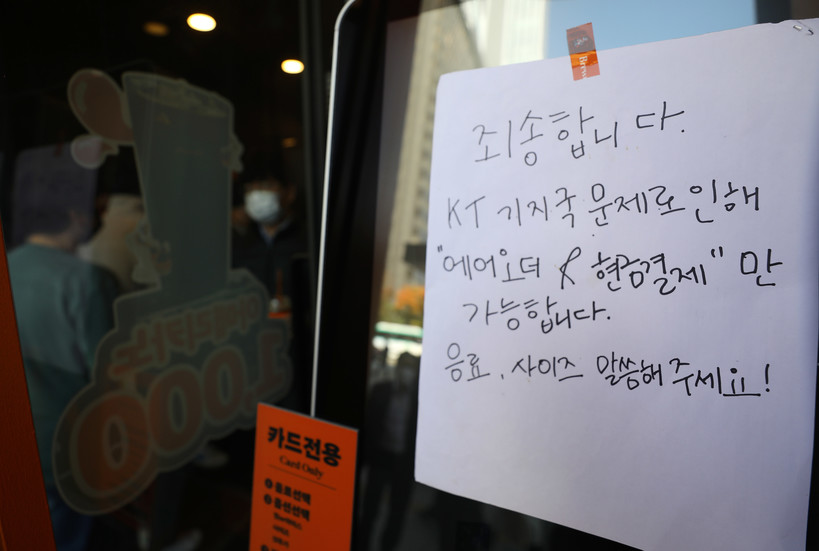 죄송합니다.
KT 기지국 문제로 인해
"에어오더 & 현금결제" 만
가능합니다.
음료, 사이즈 말씀해주세요!
카드전용
Card Only
1 음료선택
2 옵션선택
1,000